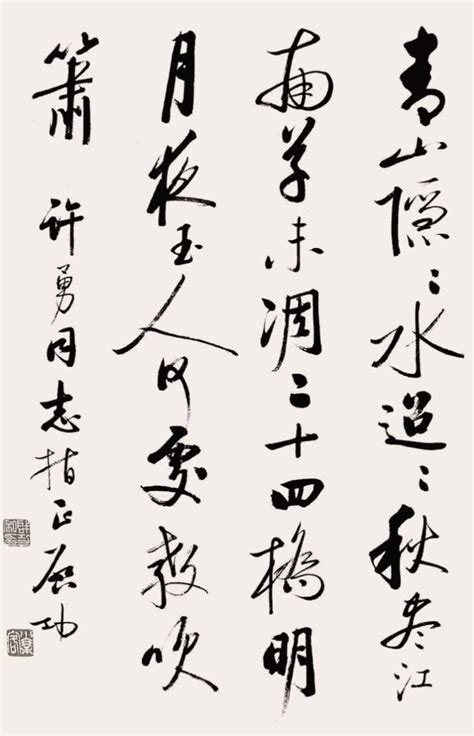 青山隱〻水迢〻秋尽江
南草未凋二十四橋明
月夜玉人何處教吹
簫 許勇同志指正 启功